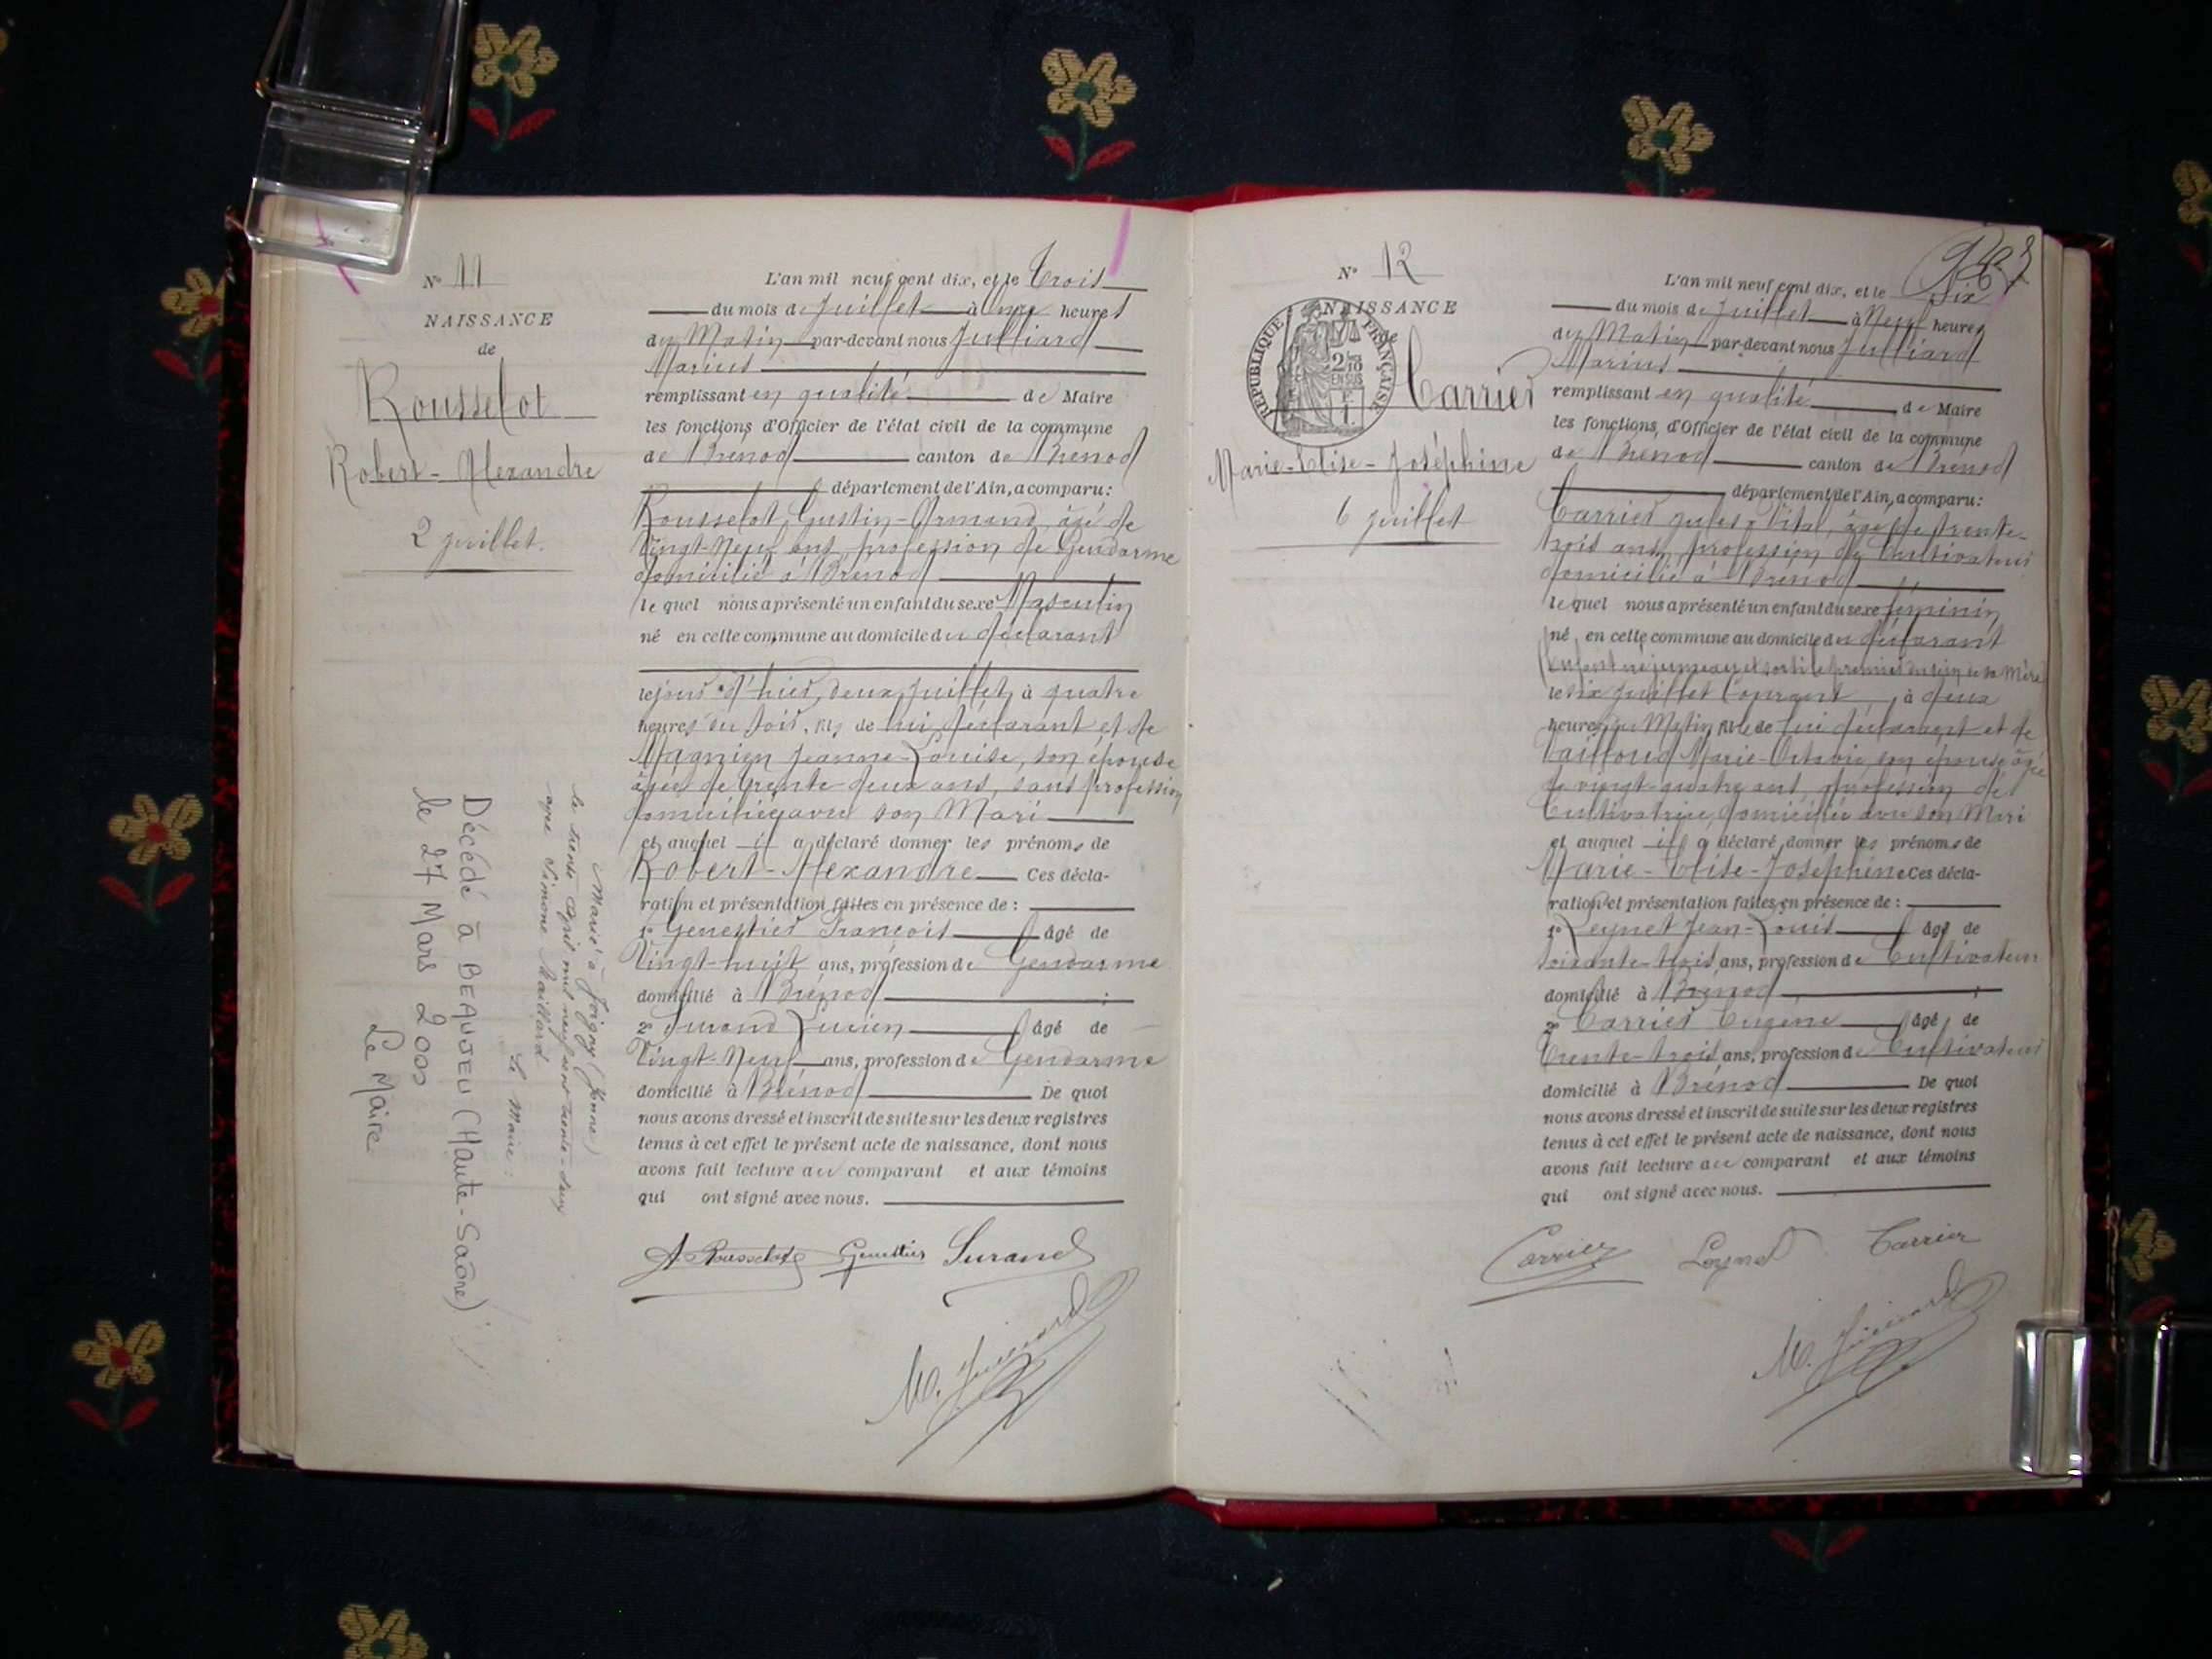 N° 11
NAISSANCE
de
Rousselot
Robert-Alexandre
2 juillet.
Marié à Joigny (Yonne)
le trente avril mil neuf cent trente-deux
avec Simone Maillard
Le Maire :
Décédé à BEAUJEU (Haute-Saône)
le 27 Mars 2000
Le Maire
L'an mil neuf cent dix, et le Trois
du mois de Juillet à Onze heures
du Matin par-devant nous Julliard
Marius
remplissant en qualité de Maire
les fonctions d'Officier de l'état civil de la commune
de Brénod canton de Brénod
département de l'Ain, a comparu:
Rousselot, Justin-Armand, âgé de
Vingt-Neuf ans, profession de Gendarme
domicilié à Brénod
lequel nous a présenté un enfant du sexe Masculin
né en cette commune au domicile du déclarant
le jour d'hier, deux Juillet, à quatre
heures du soir, fils de lui déclarant et de
Magnien Jeanne-Louise, son épouse
âgée de Trente-deux ans, sans profession
domiciliée avec son Mari
et auquel il a déclaré donner les prénoms de
Robert-Alexandre Ces décla-
ration et présentation faites en présence de :
1° Genestier François âgé de
Vingt-huit ans, profession de Gendarme
domicilié à Brénod ;
2° Durand Lucien âgé de
Vingt-Neuf ans, profession de Gendarme
domicilié à Brénod De quoi
nous avons dressé et inscrit de suite sur les deux registres
tenus à cet effet le présent acte de naissance, dont nous
avons fait lecture au comparant et aux témoins
qui ont signé avec nous.
A Rousselot Genestier Durand
M. Julliard
N° 12
NAISSANCE
de
RÉPUBLIQUE FRANÇAISE
2/10
EN SUS
Carrier
Marie-Elise-Joséphine
6 juillet
L'an mil neuf cent dix, et le Six
du mois de Juillet à Neuf heures
du Matin par-devant nous Julliard
Marius
remplissant en qualité de Maire
les fonctions d'Officier de l'état civil de la commune
de Brénod canton de Brénod
département de l'Ain, a comparu:
Carrier Jules-Vital, âgé de trente-
trois ans, profession de Cultivateur
domicilié à Brénod
lequel nous a présenté un enfant du sexe féminin
né en cette commune au domicile du déclarant
(enfant né jumeau et sorti le premier du sein de sa Mère
le six Juillet Courant, à deux
heures du Matin, fille de lui déclarant et de
Marie- son épouse âgée
de vingt-quatre ans, profession de
Cultivatrice, domiciliée avec son Mari
et auquel il a déclaré donner les prénoms de
Marie-Elise-Joséphine Ces décla-
ration et présentation faites en présence de :
1° Leynet Jean-Louis âgé de
soixante-trois ans, profession de Cultivateur
domicilié à Brénod ;
2° Carrier Eugène âgé de
Trente-trois ans, profession de Cultivateur
domicilié à Brénod De quoi
nous avons dressé et inscrit de suite sur les deux registres
tenus à cet effet le présent acte de naissance, dont nous
avons fait lecture au comparant et aux témoins
qui ont signé avec nous.
Carrier Leynet Carrier
M. Julliard